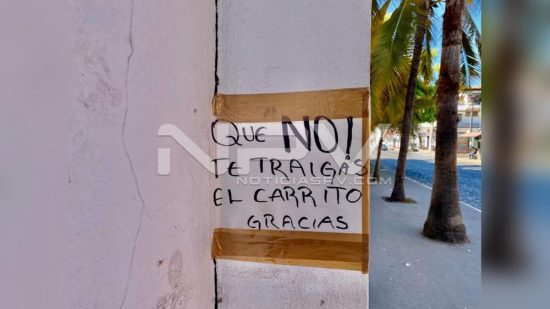 QUE NO!
TE TRAIGAS
EL CARRITO
GRACIAS
NPV
NOTICIASPV.COM